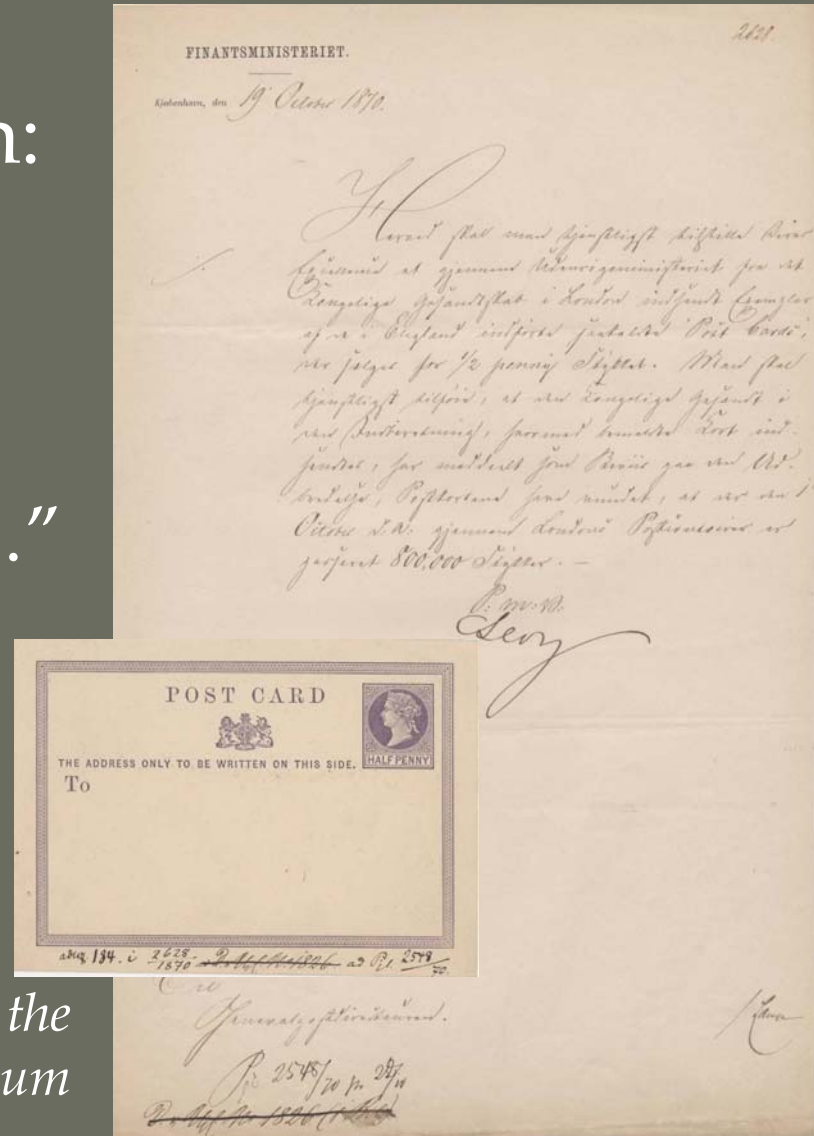 n:
."
the
um
2628.
FINANTSMINISTERIET.
Kjøbenhavn, den 19 October 1870.
Herved skal man tjenstligst tilstille Deres
Excellence et gjennem Udenrigsministeriet fra det
Kongelige Gesandtskab i London indsendt Exemplar
af de i England indførte saakaldte "Post Cards",
der sælges for 1/2 penny Stykket. Man skal
tjenstligst tilføie, at den Kongelige Gesandt i
den Indberetning, hvormed bemeldte Kort ind-
sendtes, har meddeelt som Beviis paa den Ud-
bredelse, Postkortene have vundet, at der den 1
October d.A. gjennem Londons Postcontoirer er
passeret 800,000 Stykker. —
P. M. V.
POST CARD
THE ADDRESS ONLY TO BE WRITTEN ON THIS SIDE.
HALF PENNY
To
184. i 2628/1870 1826 ad 2548/70.
Generalpostdirecteuren.
2548/70
1826